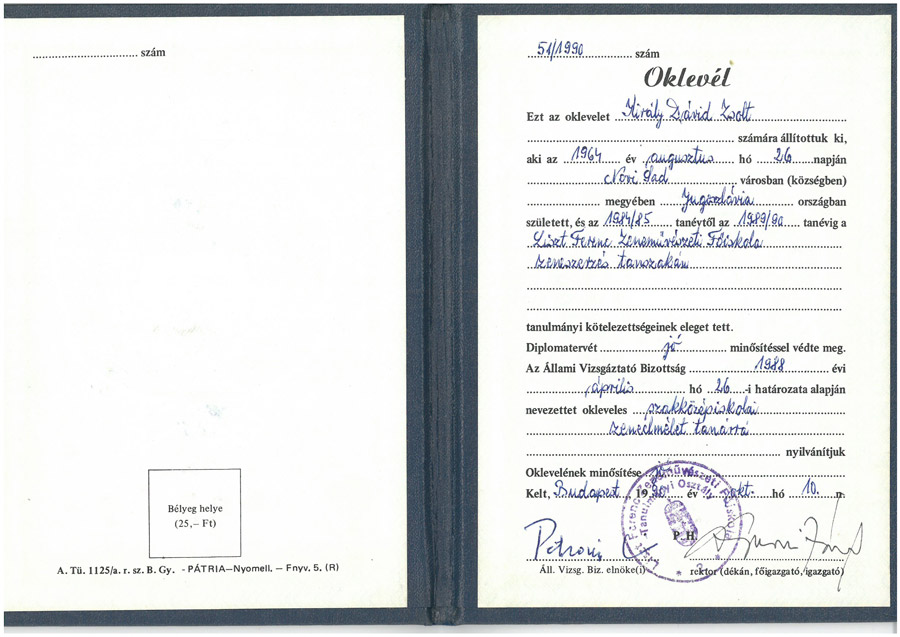 szám
Bélyeg helye
(25,– Ft)
A. Tü. 1125/a. r. sz. B. Gy. - PÁTRIA—Nyomell, — Fnyv. 5. (R)
51/1990 szám
Oklevél
Ezt az oklevelet Király Dávid Zsolt
számára állítottuk ki,
aki az 1964 év augusztus hó 26 napján
Novi Sad városban (községben)
megyében Jugoszlávia országban
született, és az 1984/85 tanévtől az 1989/90 tanévig a
Liszt Ferenc Zeneművészeti Főiskola
zeneszerzés tanszakán
tanulmányi kötelezettségeinek eleget tett.
Diplomatervét jó minősítéssel védte meg.
Az Állami Vizsgáztató Bizottság 1988 évi
április hó 26 -i határozata alapján
nevezettet okleveles szakközépiskolai
zeneelmélet tanárrá
nyilvánítjuk
Oklevelének minősítése
Kelt, Budapest, 1990 év okt. hó 10. n.
Liszt Ferenc Zeneművészeti Főiskola
Tanulmányi Osztály
P. H.
* 2 *
Petrovi
Áll. Vizsg. Biz. elnöke(i)
rektor (dékán, főigazgató, igazgató)